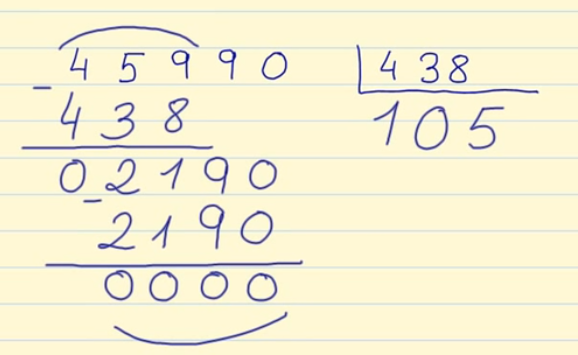 45990 | 438
- 438 105
02190
- 2190
0000